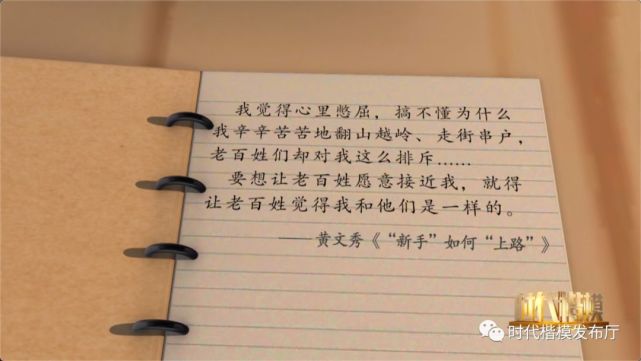 我觉得心里憋屈，搞不懂为什么
我辛辛苦苦地翻山越岭、走街串户，
老百姓们却对我这么排斥……
要想让老百姓愿意接近我，就得
让老百姓觉得我和他们是一样的。
——黄文秀《“新手”如何“上路”》
时代楷模
时代楷模发布厅